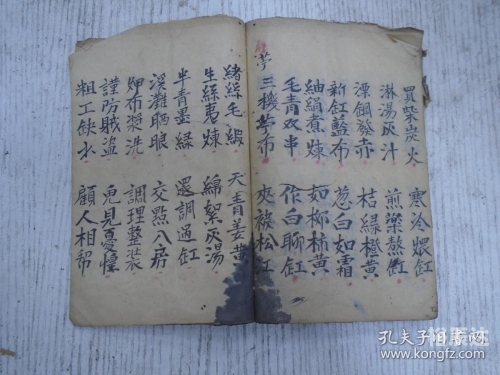 買柴炭火 寒冷煨缸
淋湯灰汁 煎藥熬缸
深銅發赤 桔綠橙黃
新缸藍布 蔥白如霜
紬絹煮煉 如柳柿黃
毛青双串 作白聊缸
三機荢布 夾被松江
緒絲毛緞 天青姜黃
生絲夷煉 綿絮灰湯
半青墨綠 還調通缸
溪灘晒晾 交點入房
押布漿洗 調理整裝
謹防賊盜 免見憂懷
粗工飲水 顧人相幫
孔夫子旧书网
www.kongfz.com